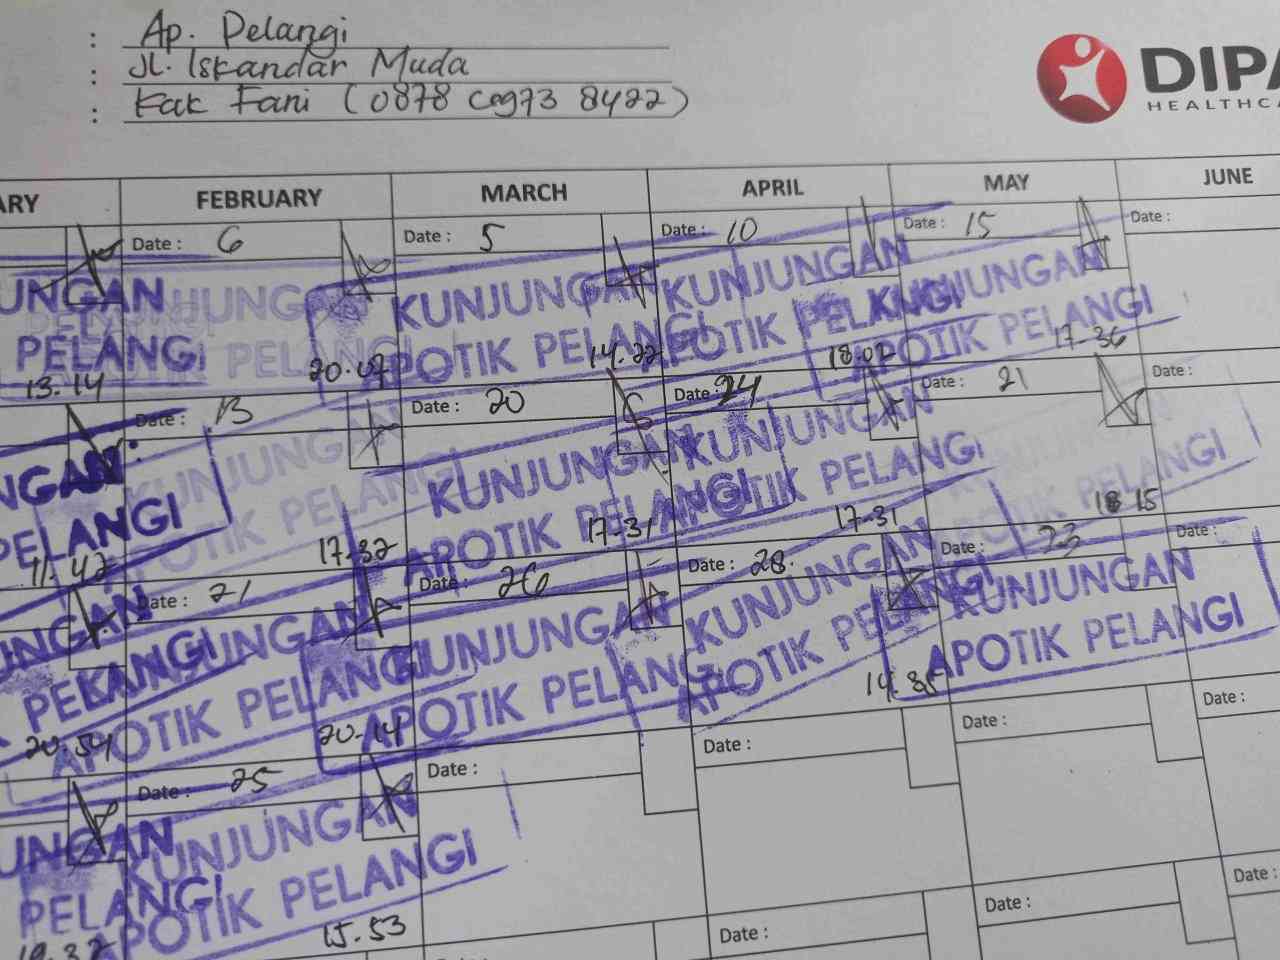 : Ap. Pelangi
: Jl. Iskandar Muda
: Kak Fani (0878 8422)
DIPA
HEALTHCA
ARY FEBRUARY MARCH APRIL MAY JUNE
Date : 6 Date : 5 Date : 10 Date : 15 Date :
UNGAN KUNJUNGAN KUNJUNGAN KUNJUNGAN KUNJUNGAN
PELANGI PELANGI APOTIK PELANGI APOTIK PELANGI APOTIK PELANGI
13.14 20.07 14.22 18.02 17-36
Date : 13 Date : 20 Date : 24 Date : 21 Date :
NGAN KUNJUNGAN KUNJUNGAN KUNJUNGAN
PELANGI APOTIK PELANGI APOTIK PELANGI APOTIK PELANGI APOTIK PELANGI
11.42 17-32 17-31 17-31 18 15
Date : 21 Date : 26 Date : 28. Date : 23 Date :
UNGAN KUNJUNGAN KUNJUNGAN KUNJUNGAN KUNJUNGAN
PELANGI APOTIK PELANGI APOTIK PELANGI APOTIK PELANGI APOTIK PELANGI
20.54 20-14
Date : 25 Date : Date : Date : Date :
UNGAN KUNJUNGAN
PELANGI APOTIK PELANGI
15.53
Date : Date : Date :